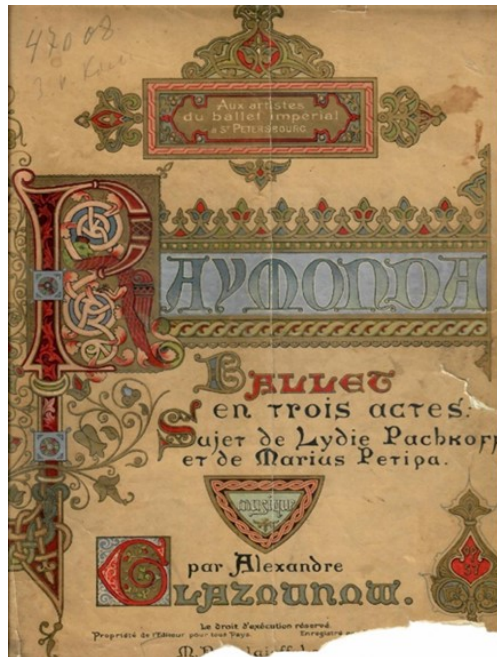 47008
Aux artistes
du ballet impérial
à St PETERSBOURG
RAYMONDA
BALLET
en trois actes.
Sujet de Lydie Pachkoff
et de Marius Petipa.
musique
par Alexandre
GLAZOUNOW.
Le droit d'exécution réservé.
Propriété de l'Editeur pour tous Pays. Enregistré